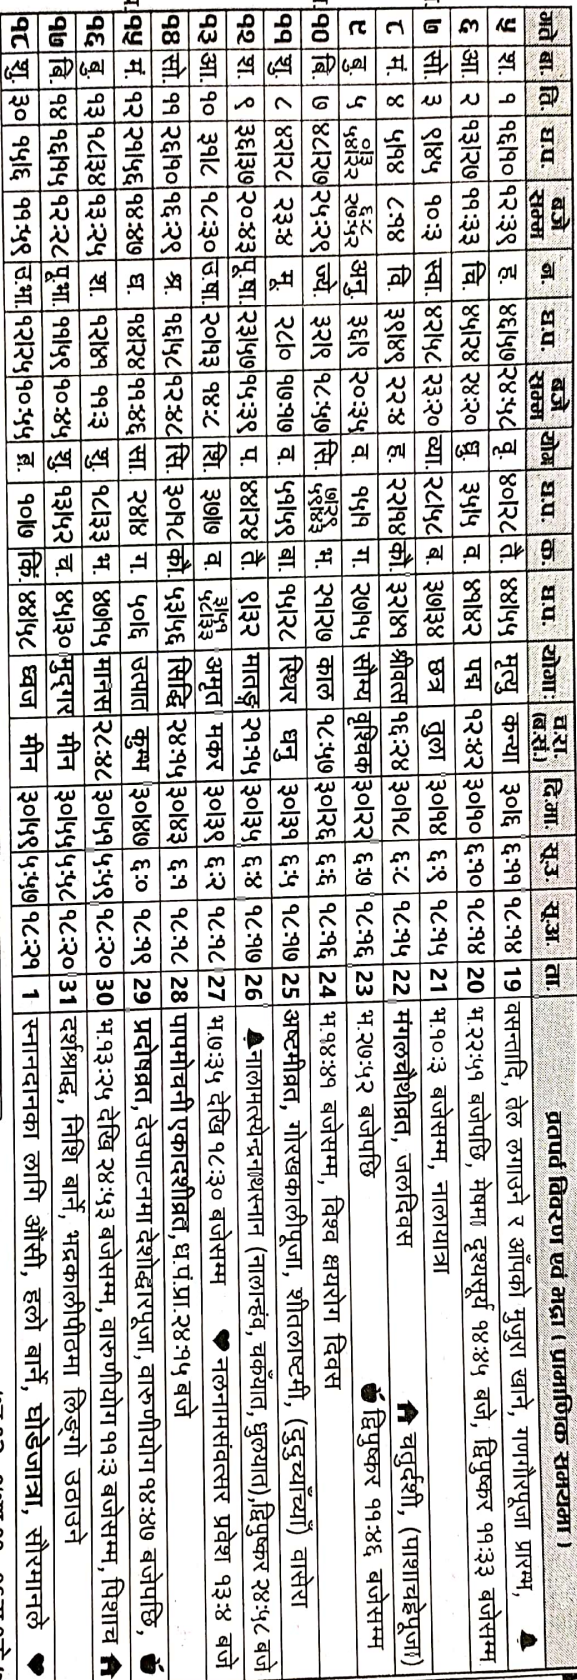 गते वा. ति. घ.प. बजे सम्म न. घ.प. बजे सम्म योग घ.प. क. घ.प. योगाः च.रा. (व.सं.) दि.मा. सू.उ. सू.अ. ता. व्रतपर्व विवरण एवं भद्रा (प्रामाणिक समयमा)
५ श. १ १६।१० १२:३९ ह. ४६।५७ २४:५८ वृ. ४०।२८ तै ४४।५ मृत्यु कन्या ३०।६ ६:११ १८:१४ 19 वसन्तादि, तेल लगाउने र आँपको मुजुरा खाने, गणगौरपूजा प्रारम्भ,
६ आ. २ १३।२७ ११:३३ चि. ४५।२४ २४:२० ध्रु. ३५।५ व. ४१।४२ पद्म १२:४२ ३०।१० ६:१० १८:१४ 20 भ.२२:५१ बजेपछि, मेषमा दृश्यसूर्य १४:४५ बजे, द्विपुष्कर ११:३३ बजेसम्म
७ सो. ३ ९।४५ १०:३ स्वा. ४२।५८ २३:२० व्या. २८।५८ ब. ३७।३४ छत्र तुला ३०।१४ ६:९ १८:१५ 21 भ.१०:३ बजेसम्म, नालायात्रा
८ मं. ४ ५।१४ ८:१४ वि. ३९।४९ २२:४ ह. २२।१४ कौ. ३२।४१ श्रीवत्स १६:२४ ३०।१८ ६:८ १८:१५ 22 मंगलचौथीव्रत, जलदिवस चतुर्दशी, (पाशाचह्रेपूजा)
९ बु. ५ ०।३ ५४।२२ ६:८ २७:५२ अनु. ३६।९ २०:३५ व. १५।१ ग. २७।१५ सौम्य वृश्चिक ३०।२२ ६:७ १८:१६ 23 भ.२७:५२ बजेपछि द्विपुष्कर ११:४६ बजेसम्म
१० बि. ७ ४८।२७ २५:२९ ज्ये. ३२।९ १८:५७ सि. ७।२९ ५९।४३ भ. २१।२७ काल १८:५७ ३०।२६ ६:६ १८:१६ 24 भ.१४:४१ बजेसम्म, विश्व क्षयरोग दिवस
११ शु. ८ ४२।२८ २३:४ मू. २८।० १७:१७ व. ५१।५९ बा. १५।२८ स्थिर धनु ३०।३१ ६:५ १८:१७ 25 अष्टमीव्रत, गोरखकालीपूजा, शीतलाष्टमी, (दुदुच्याँच्याँ) चासेरा
१२ श. ९ ३६।३७ २०:४३ पू.षा. २३।५७ १५:३९ प. ४४।२४ तै ९।३२ मातङ्ग २१:१५ ३०।३५ ६:४ १८:१७ 26 नालामत्स्येन्द्रनाथस्नान (नालान्हवं, चकंयात, घुल्यात), द्विपुष्कर २४:५८ बजे
१३ आ. १० ३१।८ १८:३० उ.षा. २०।१३ १४:८ शि. ३७।७ व. ३।५१ ५८।३३ अमृत मकर ३०।३९ ६:२ १८:१८ 27 भ.७:३५ देखि १८:३० बजेसम्म नलनामसंवत्सर प्रवेश १३:४ बजे
१४ सो. ११ २६।१० १६:२९ श्र. १६।५८ १२:४८ सि. ३०।१८ कौ. ५३।५६ सिद्धि २४:१५ ३०।४३ ६:१ १८:१८ 28 पापमोचनीएकादशीव्रत, ध.पं.प्रा.२४:१५ बजे
१५ मं. १२ २१।५६ १४:४७ ध. १४।२४ ११:४६ सा. २४।४ ग. ५०।६ उत्पात कुम्भ ३०।४७ ६:० १८:१९ 29 प्रदोषव्रत, देउपाटनमा देशोद्धारपूजा, वारुणीयोग १४:४७ बजेपछि,
१६ बु. १३ १८।३४ १३:२५ श. १२।४१ ११:३ शु. १८।३३ भ. ४७।१५ मानस २८:४८ ३०।५१ ५:५९ १८:२० 30 भ.१३:२५ देखि २४:५३ बजेसम्म, वारुणीयोग ११:३ बजेसम्म, पिशाच
१७ बि. १४ १६।१५ १२:२८ पू.भा. ११।५९ १०:४५ शु. १३।५२ च. ४५।३० मुद्गर मीन ३०।५५ ५:५८ १८:२० 31 दर्शश्राद्ध, निशि बार्ने, भद्रकालीपीठमा लिङ्गो उठाउने
१८ शु. ३० १५।६ ११:५९ उ.भा. १२।२५ १०:५५ ब्र. १०।७ किं. ४४।५८ ध्वज मीन ३०।५९ ५:५७ १८:२१ 1 स्नानदानका लागि औंसी, हलो बार्ने, घोडेजात्रा, सौरमानले